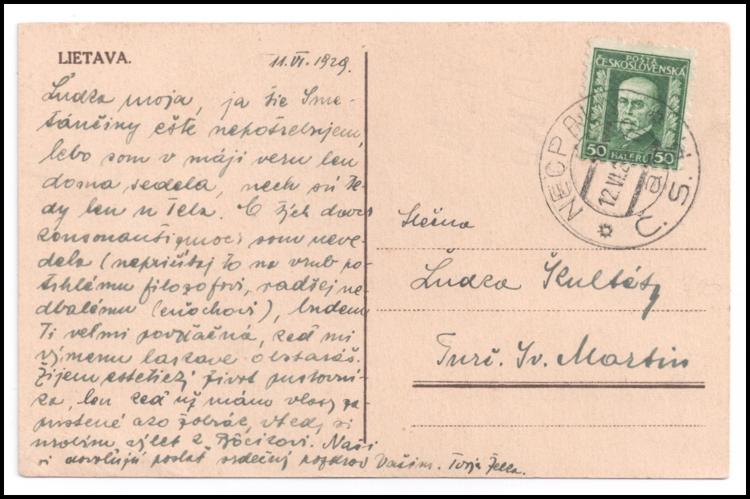 LIETAVA.
11.VI.1929.
Ľudka moja, ja tie Sme-
tánčiny ešte nepotrebujem,
lebo som v máji veru len
doma sedela, nech sú te-
dy len u Teba. O tých dvoch
som neve-
dela (nepričítaj to na vrub po-
tuhlému filozofovi, radšej ne-
dbalému (enochovi), budem
Ti veľmi povďačná, keď mi
výmenu láskave obstaráš.
Žijem estetický život pustovní-
ka, len keď už mámo vlasy za-
pustené ako žobrák, vtedy si
urobím výlet k Naši
si dovoľujú poslať srdečný pozdrav Vašim. Tvoja Želka.
POŠTA
ČESKOSLOVENSKÁ
50 HALÉŘŮ 50
NECP
12.VI.2
Č.S.
Slečna
Ľudka Škultéty
Turč. Sv. Martin